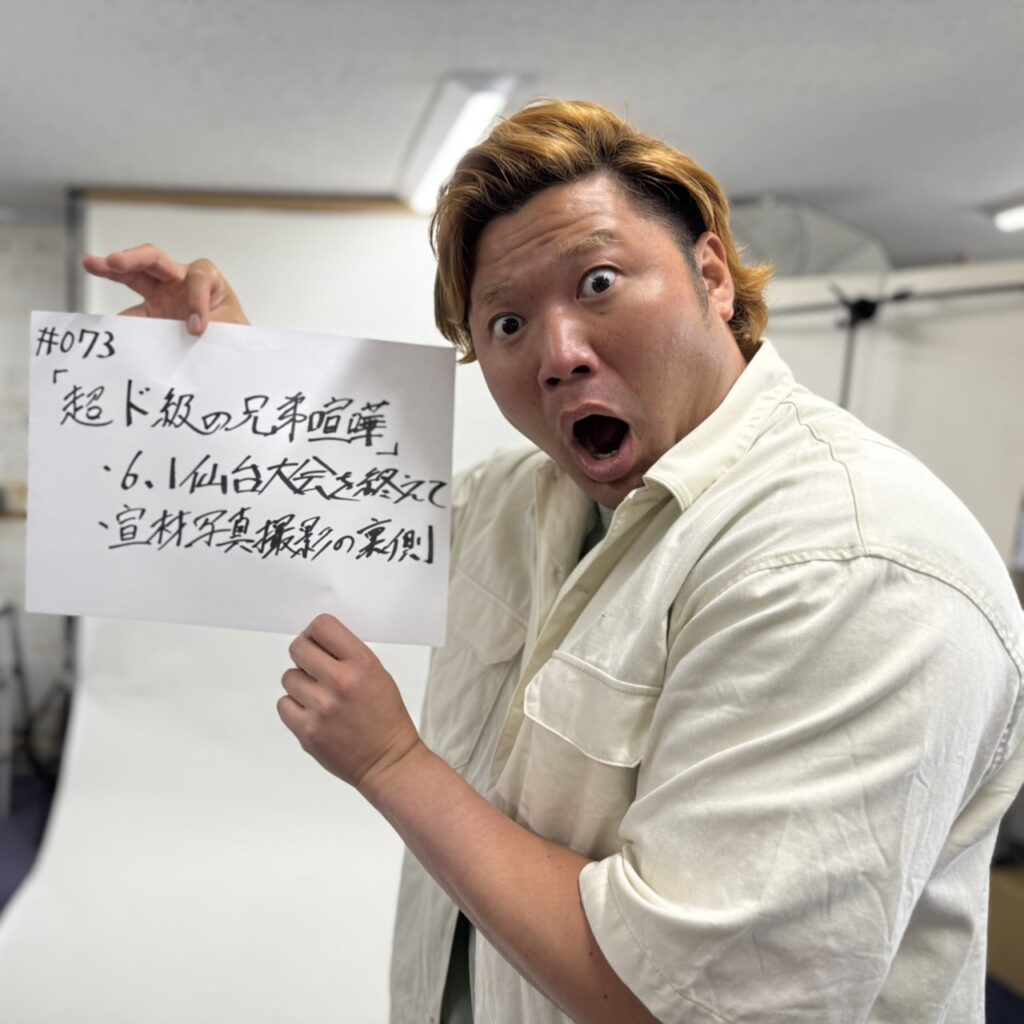 #073
「超ド級の兄弟喧嘩」
・6.1仙台大会を終えて
・宣材写真撮影の裏側